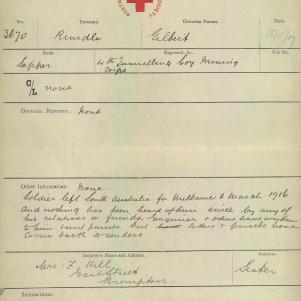 AUST
SOCIETY
No. Surname. Christian Names.
3670 Rundle Gilbert 15/5/17
Rank. Regiment, &c. File No.
Sapper 4th Tunnelling Coy Mining
Corps
C/L none
OFFICIAL REPORTS: None
Other Information: None.
Soldier left South Australia for Melbourne 6 March 1916
and nothing has been heard of him since by any of
his relatives or friends. Enquirer & others have written
to him & sent parcels but most letters & parcels have
Come back to senders
Inquirer's Name and Address. Relation.
Mrs F. Hill Sister
East Street
Brompton
Instructions: